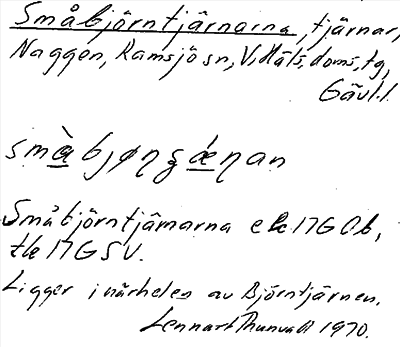 Småbjörntjärnarna, tjärnar,
Naggen, Ramsjö sn, V. Häls. doms, tg,
Gävl. l.
småbjøɳʂæɳan
Småbjörntjärnarna ek 17G 0b,
tk 17G SV.
Ligger i närheten av Björntjärnen.
Lennart Thunvall 1970.